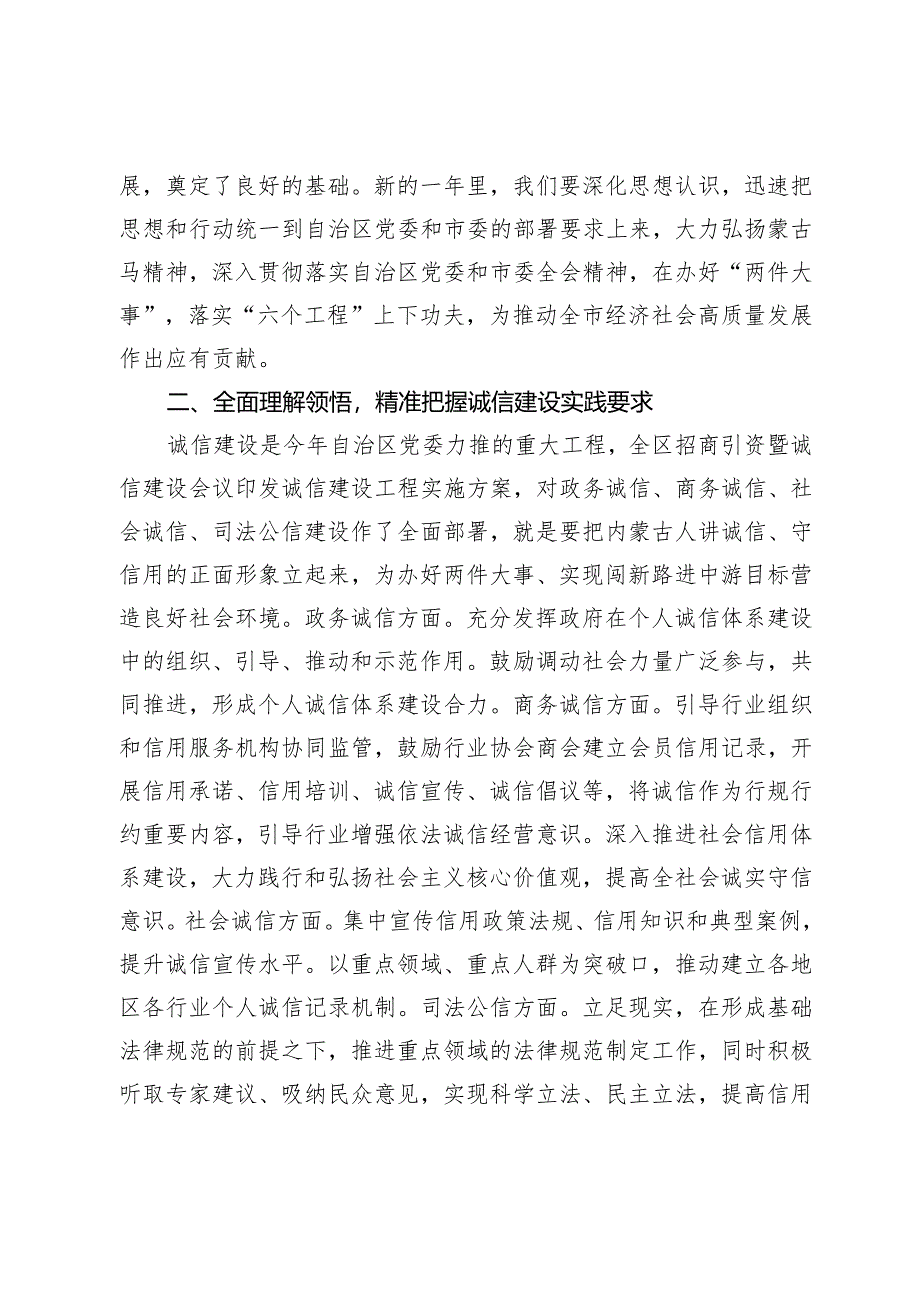 展，奠定了良好的基础。新的一年里，我们要深化思想认识，迅速把
思想和行动统一到自治区党委和市委的部署要求上来，大力弘扬蒙古
马精神，深入贯彻落实自治区党委和市委全会精神，在办好“两件大
事”，落实“六个工程”上下功夫，为推动全市经济社会高质量发展
作出应有贡献。
二、全面理解领悟，精准把握诚信建设实践要求
诚信建设是今年自治区党委力推的重大工程，全区招商引资暨诚
信建设会议印发诚信建设工程实施方案，对政务诚信、商务诚信、社
会诚信、司法公信建设作了全面部署，就是要把内蒙古人讲诚信、守
信用的正面形象立起来，为办好两件大事、实现闯新路进中游目标营
造良好社会环境。政务诚信方面。充分发挥政府在个人诚信体系建设
中的组织、引导、推动和示范作用。鼓励调动社会力量广泛参与，共
同推进，形成个人诚信体系建设合力。商务诚信方面。引导行业组织
和信用服务机构协同监管，鼓励行业协会商会建立会员信用记录，开
展信用承诺、信用培训、诚信宣传、诚信倡议等，将诚信作为行规行
约重要内容，引导行业增强依法诚信经营意识。深入推进社会信用体
系建设，大力践行和弘扬社会主义核心价值观，提高全社会诚实守信
意识。社会诚信方面。集中宣传信用政策法规、信用知识和典型案例，
提升诚信宣传水平。以重点领域、重点人群为突破口，推动建立各地
区各行业个人诚信记录机制。司法公信方面。立足现实，在形成基础
法律规范的前提之下，推进重点领域的法律规范制定工作，同时积极
听取专家建议、吸纳民众意见，实现科学立法、民主立法，提高信用